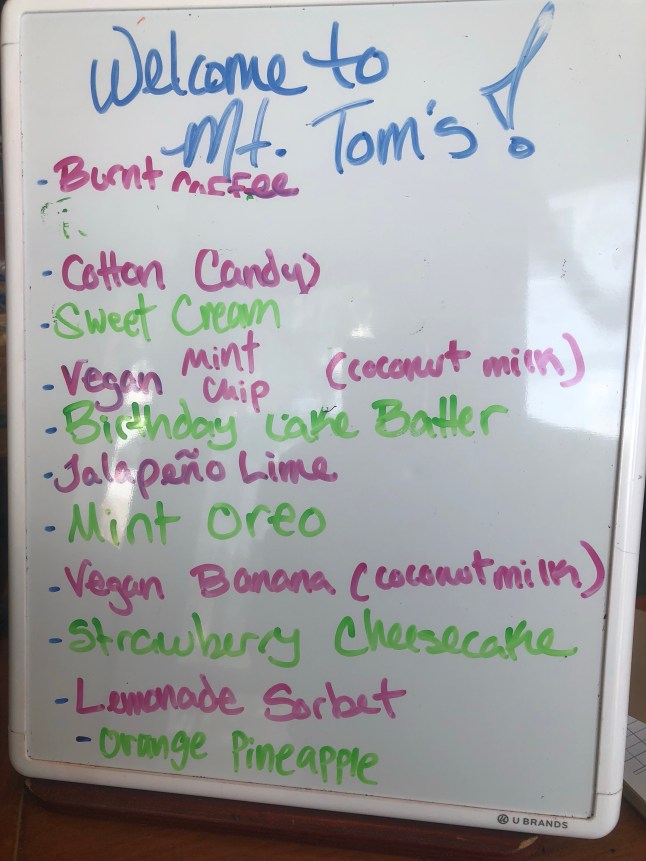 Welcome to
Mt. Tom's!
- Burnt
- Cotton Candy
- Sweet Cream
- Vegan Mint Chip (coconut milk)
- Birthday Cake Batter
- Jalapeño Lime
- Mint Oreo
- Vegan Banana (coconut milk)
- Strawberry Cheesecake
- Lemonade Sorbet
- Orange Pineapple
U BRANDS